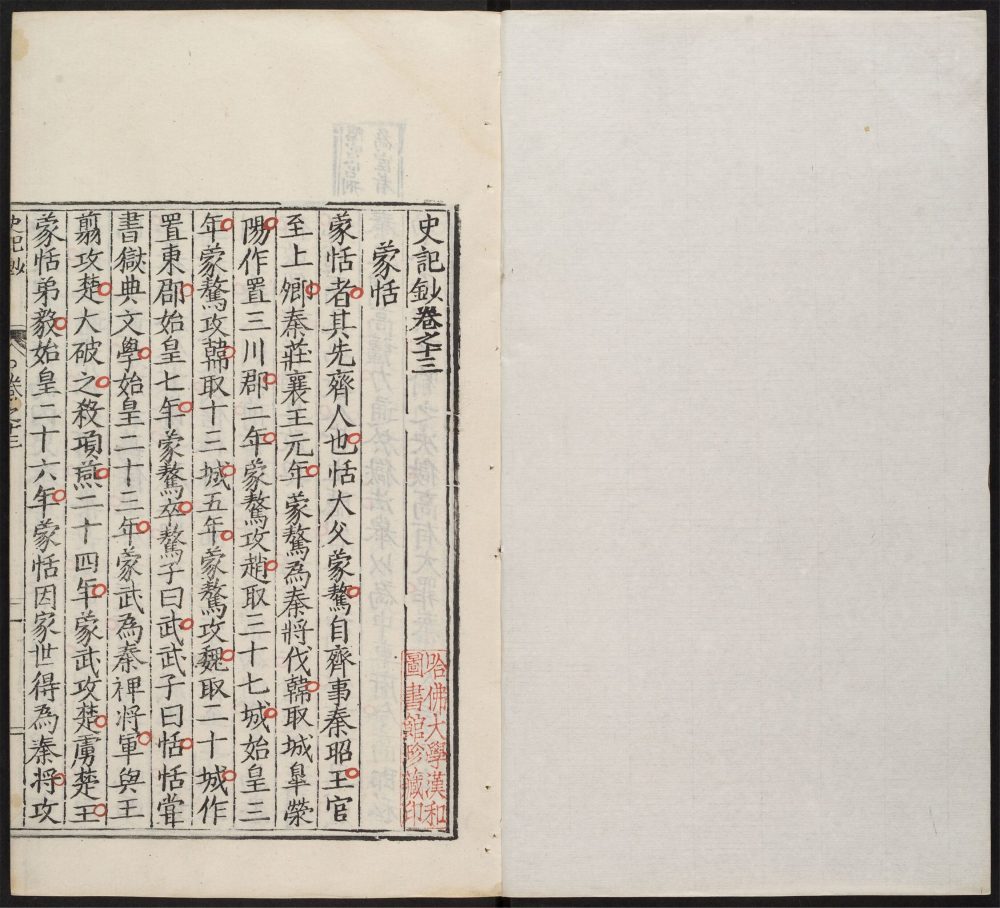 史記鈔卷之十三
蒙恬
蒙恬者其先齊人也恬大父蒙驁自齊事秦昭王官
至上卿秦莊襄王元年蒙驁為秦將伐韓取城皐滎
陽作置三川郡二年蒙驁攻趙取三十七城始皇三
年蒙驁攻韓取十三城五年蒙驁攻魏取二十城作
置東郡始皇七年蒙驁卒驁子曰武武子曰恬恬嘗
書獄典文學始皇二十三年蒙武為秦裨將軍與王
翦攻楚大破之殺項燕二十四年蒙武攻楚虜楚王
蒙恬弟毅始皇二十六年蒙恬因家世得為秦將攻
史記鈔 卷之十三 一
哈佛大學漢和
圖書館珍藏印